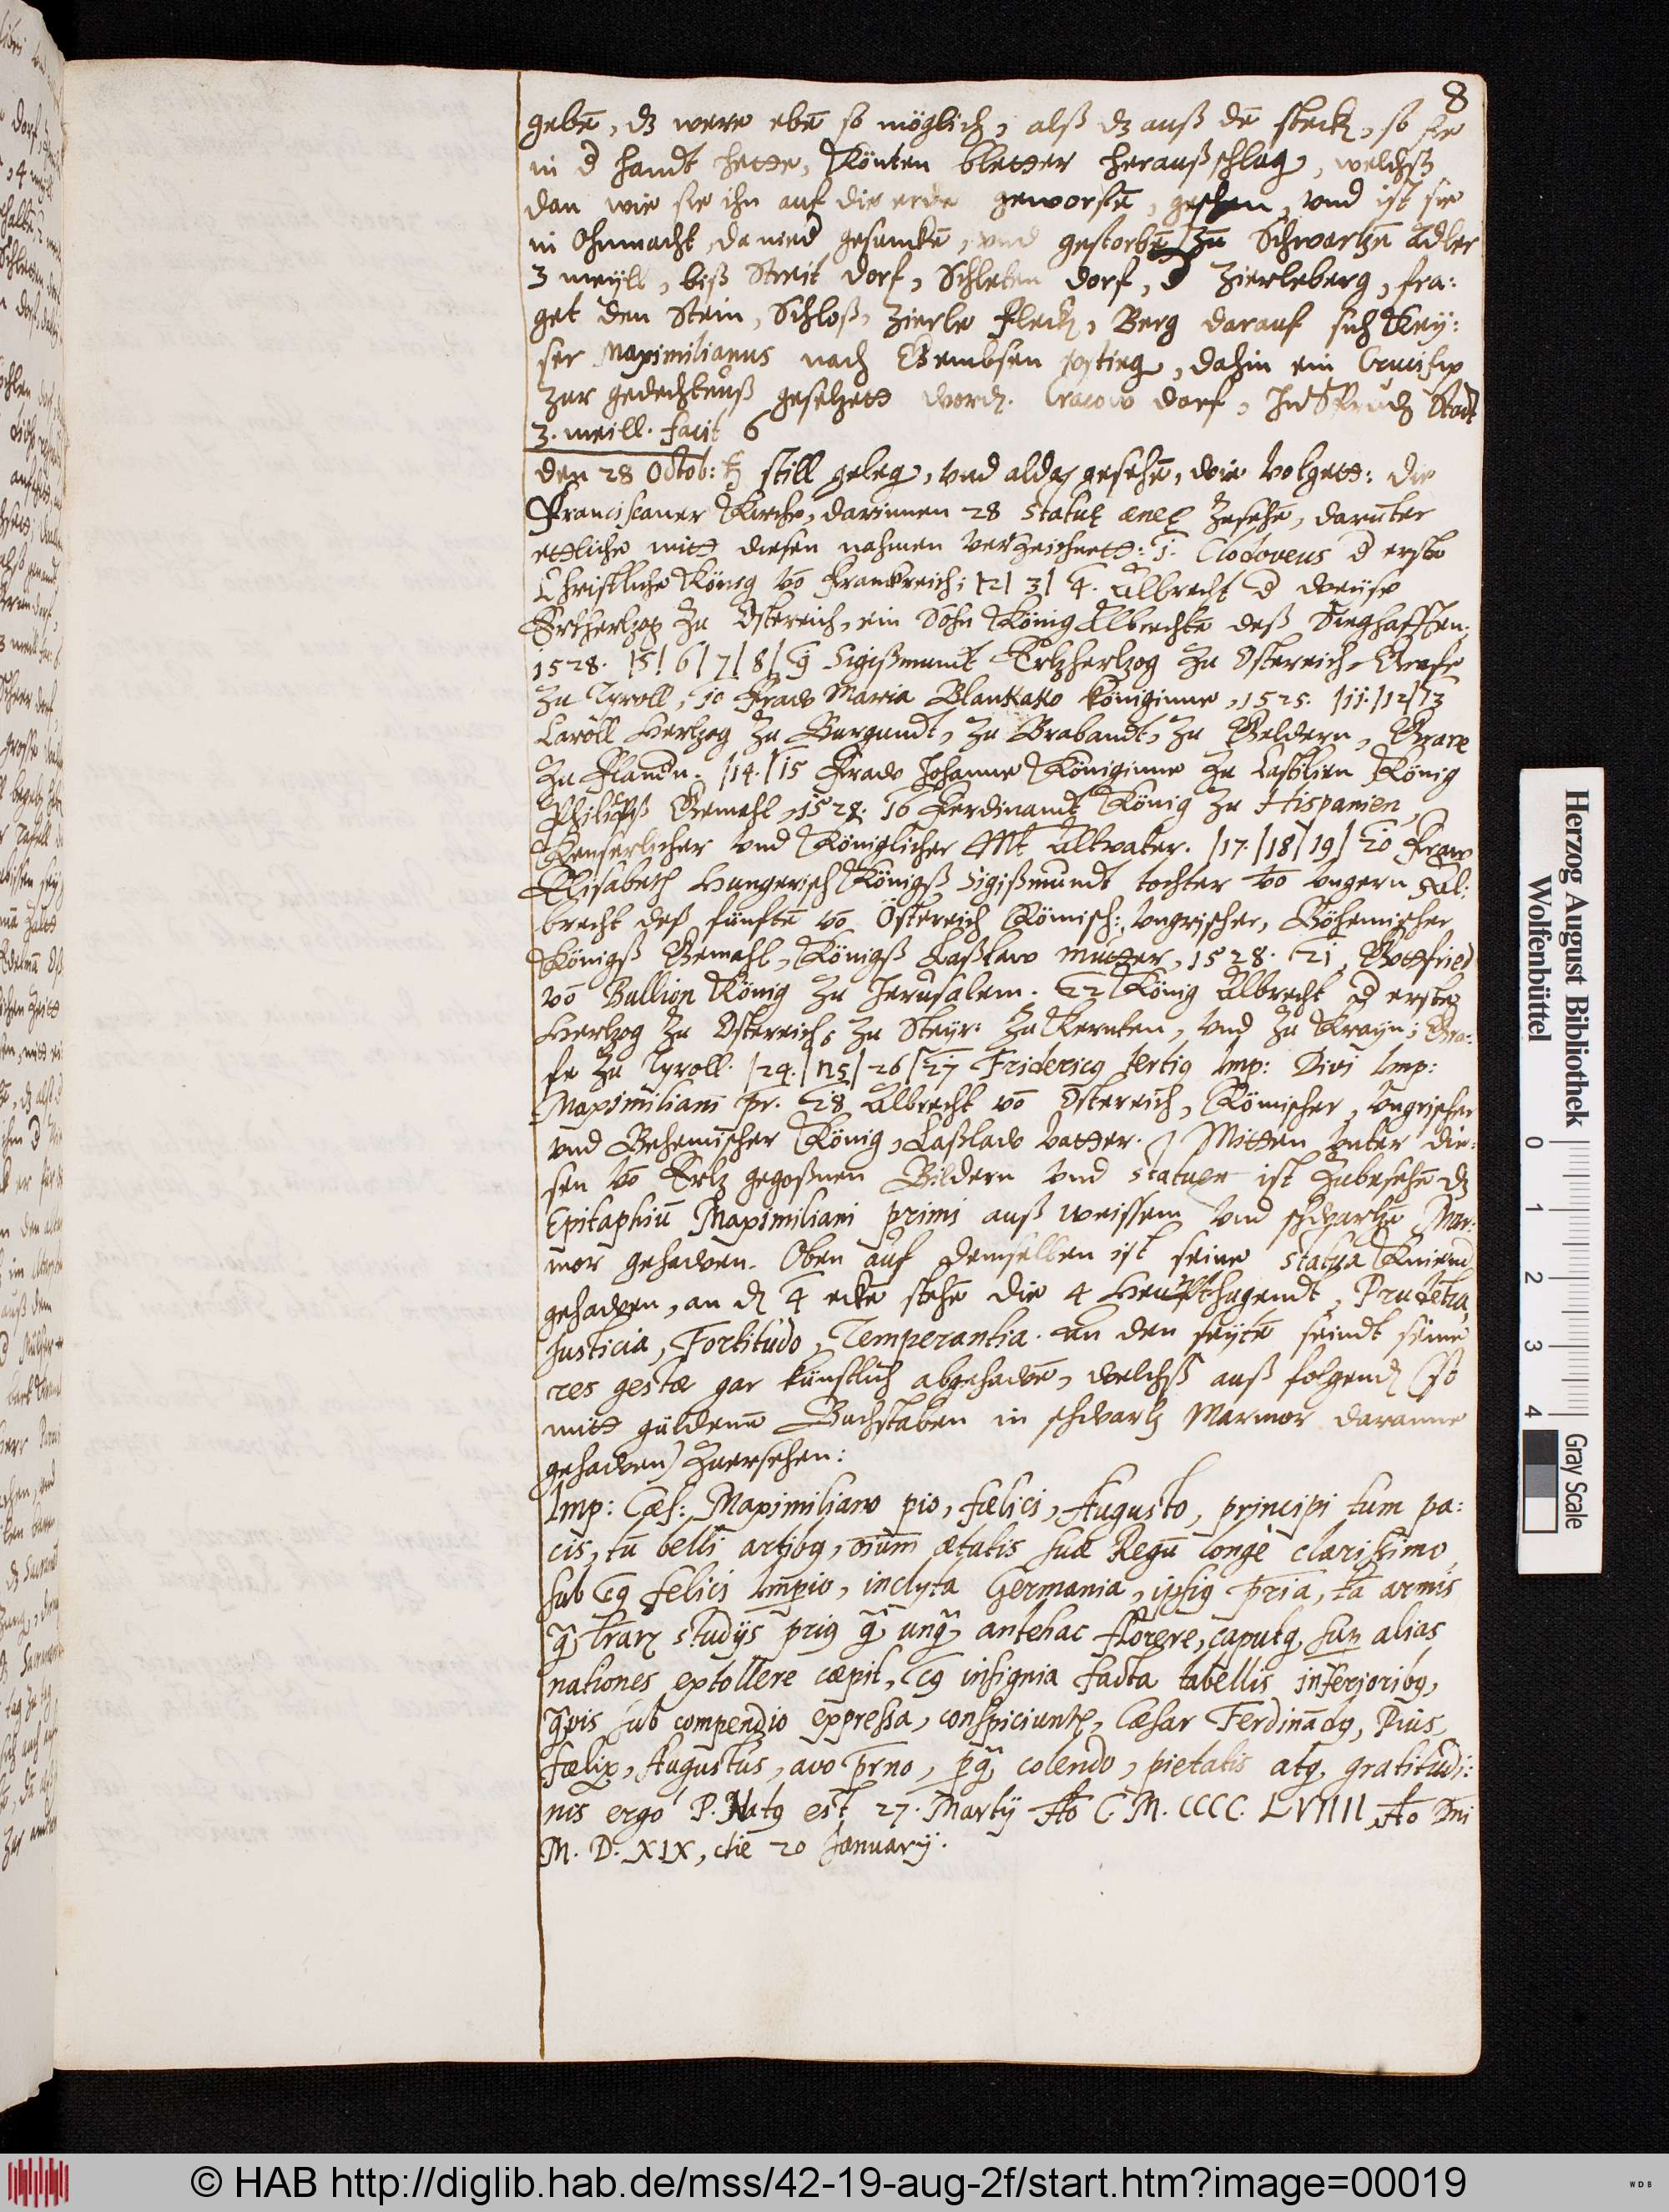 8
gebē, dz were ebē so möglich, alß dz auß dē steck, so sie
in d handt hette, Könten bletter heraußschlag, welchß
dan wie sie ihn auf die erde geworfē, geschen, vnd ist sie
in Ohnmacht, da nied gesunckē, vnd gestorbē, Zū Schwartzē Adler
3 meyll, biß Streit dorf, dorf, d Zierleberg, fra:
get den Stein, Schloß, Zierle Fleck, Berg darauf sich Key:
ser Maximilianus nach Gembsen, dahin ein Crucifix
zur gedechtnuß gesetzett word. dorf, InSpruck Stadt
3. meill. facit 6
den 28 Octob: still geleg, vnd alda gesehē, wie volgett: die
Franciscaner Kirche, darinnen 28 statuę æneę Zusehē, darūter
ettliche mitt diesen nahmen verzeichnett: 1. Clodoveus d erste
Christliche König vō Frankreich; |2| 3| 4. Albrecht d weyse
Ertzhertzog Zu Osterreich, ein Sohn König Albrechtē deß Sieghafften.
1528. |5| 6| 7| 8| 9 Sigißmundt Ertzhertzog Zu Ostereich, Grafe
Zu Tyroll, 10 Fraw Maria königinne, 1525. |11.|12|13
Caroll Hertzog Zu Burgundt, Zu Brabandt, Zu Geldern, Grave
Zu Flandn. |14.|15 Fraw Johanne Königinne Zu Castilien König
Philipß Gemahl, 1528. 16 Ferdinandt König Zu Hispanien,
Keyserlicher vnd Königlicher Mt Altvater. |17.|18|19| 20 Fraw
Elisabeth Hungerisch Königß Sigißmundt tochter vō vngern, Al:
brecht deß fünftē vō Österreich Römisch:, vngrischer, Böhemischer
Königß Gemahl, Königß Laßlaw mutter, 1528. 21, Gottfried
vō Bullion König Zu Jerusalem. 22 König Albrecht d erste,
Hertzog Zu Ostereich, Zu Steyr: Zu Kernten, vnd Zu Krayn; Gra:
fe Zu Tyroll. |24.| 25| 26| 27 Fridericq tertiq Imp: Divi Imp:
Maximiliani pr. 28 Albrecht vō Ostereich, Römischer, Vngrischer
vnd Behemischer König, Laßlaw vatter. Mitten vnter die:
sen vō Ertz gegoßnen Bildern vnd statuen ist Zubesehē dz
Epitaphiū Maximiliani primi auß weissem vnd schwartzē Mar:
mor gehawen. Oben auf demselben ist seine Statua Kniend
gehawen, an d 4 ecke stehē die 4 Heupthugendt, Prudētia,
Justicia, Fortitudo, Temperantia. An den seytē seindt seine
res gestæ gar künstlich abgehawē, welchß auß folgend (so
mitt güldenē Buchstaben in schwartz Marmor daranne
gehawen) Zuersehen:
Imp: Cæs: Maximiliano pio, fœlici, Augusto, principi tum pa:
cis, tū belli artibq, oium ætatis suæ Regū longè clarissimo,
sub cq felici Imperio, inclyta Germania, ipsiq pria, tā armis
q̃, lrarɀ studijs priq q̃, unq̃, antehac florere, caputq, sup alias
nationes extollere cœpit, Cq insignia facta tabellis inferioribq,
q̃vis sub compendio expressa, conspiciuntɀ, Cæsar Ferdinādq, Pius,
fœlix, Augustus, avo prno, pq̃, colendo, pietatis atq, gratitudi:
nis ergo P. Natq est 27. Martij Ao C. M. CCCC. LVIIII, Ao Dni
M. D. XIX, die 20 January.
Herzog August Bibliothek
Wolfenbüttel
0 1 2 3 4 Gray Scale
© HAB http://diglib.hab.de/mss/42-19-aug-2f/start.htm?image=00019
WDB